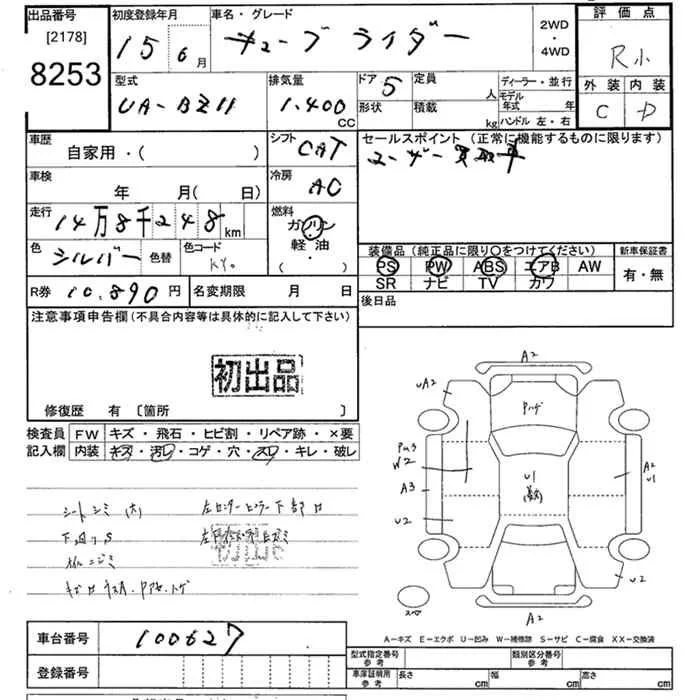 出品番号 初度登録年月 車名・グレード 2WD・4WD 評価点
[2178] 15 6月 キューブ ライダー R小
8253
型式 排気量 ドア 5 定員 人 ディーラー・並行 外装 内装
UA-BZ11 1.400 CC 形状 積載 kg モデル年式 年 C D
ハンドル 左・右
車歴 シフト セールスポイント(正常に機能するものに限ります)
自家用・( ) CAT ユーザー買取車
車検 冷房
年 月( 日) AC
走行 燃料
14万8千248km ガソリン
色 シルバー 色替 色コード KY0 軽油 装備品(純正品に限り○をつけてください) 新車保証書
・( ) PS PW ABS エアB AW 有・無
SR ナビ TV カワ
R券 10.890円 名変期限 月 日 後日品
注意事項申告欄(不具合内容等は具体的に記入して下さい)
初出品
修復歴 有 〔箇所 〕
検査員 FW キズ・飛石・ヒビ割・リペア跡・×要
記入欄 内装 キズ・汚レ・コゲ・穴・スレ・キレ・破レ
シートシミ(大) 左センターピラー下部
下廻りS
初出品
A2
UA2
Pハゲ
W2
A3
U2
U1
A2
U1
U2
A2
スペア
A-キズ E-エクボ U-凹み W-補修跡 S-サビ C-腐食 XX-交換済
車台番号 100627 型式指定番号 参考 類別区分番号 参考
登録番号 車庫証明用 参考 長さ cm 幅 cm 高さ cm